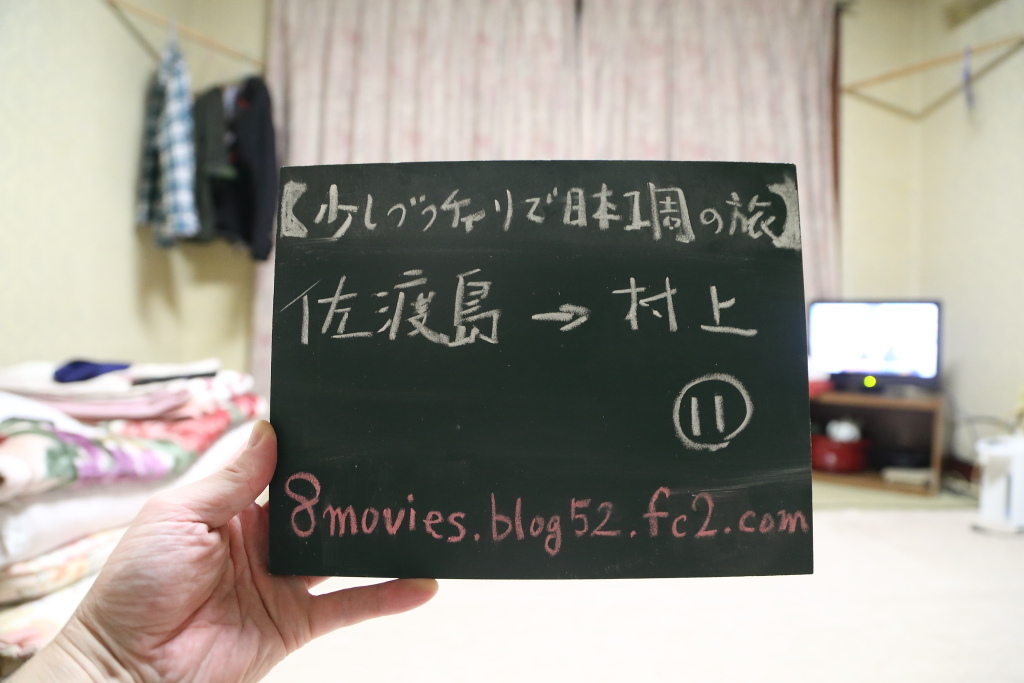 【少しづつチャリで日本1周の旅】
佐渡島→村上
⑪
8movies.blog52.fc2.com